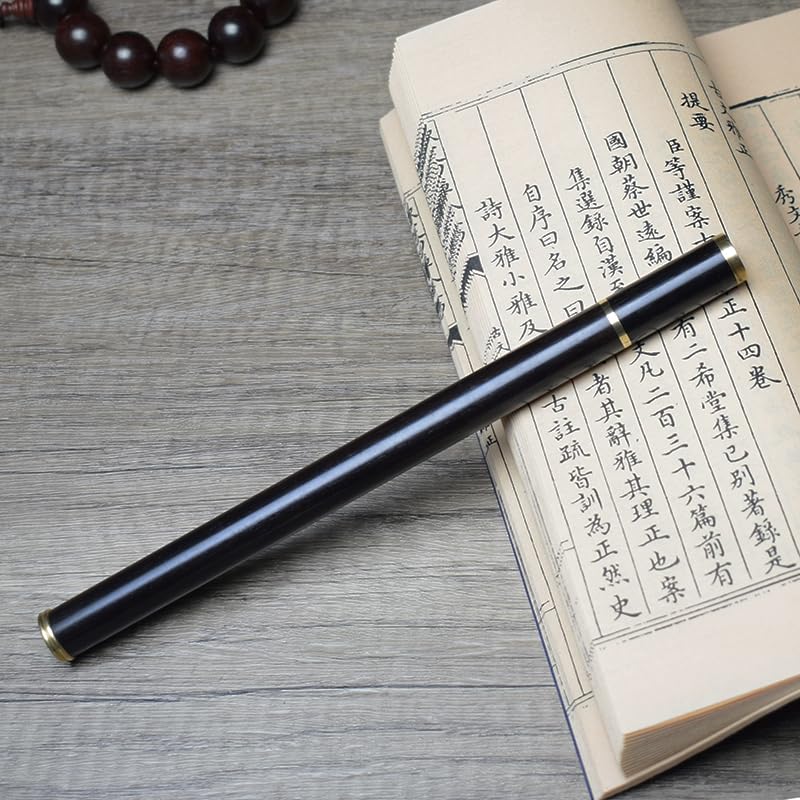 古文雅正
提要
臣等謹案 正十四卷
國朝蔡世遠編 有二希堂集已別著錄是
集選錄自漢至 文凡二百三十六篇前有
自序曰名之曰 者其辭雅其理正也案
詩大雅小雅及 古註疏皆訓為正然史